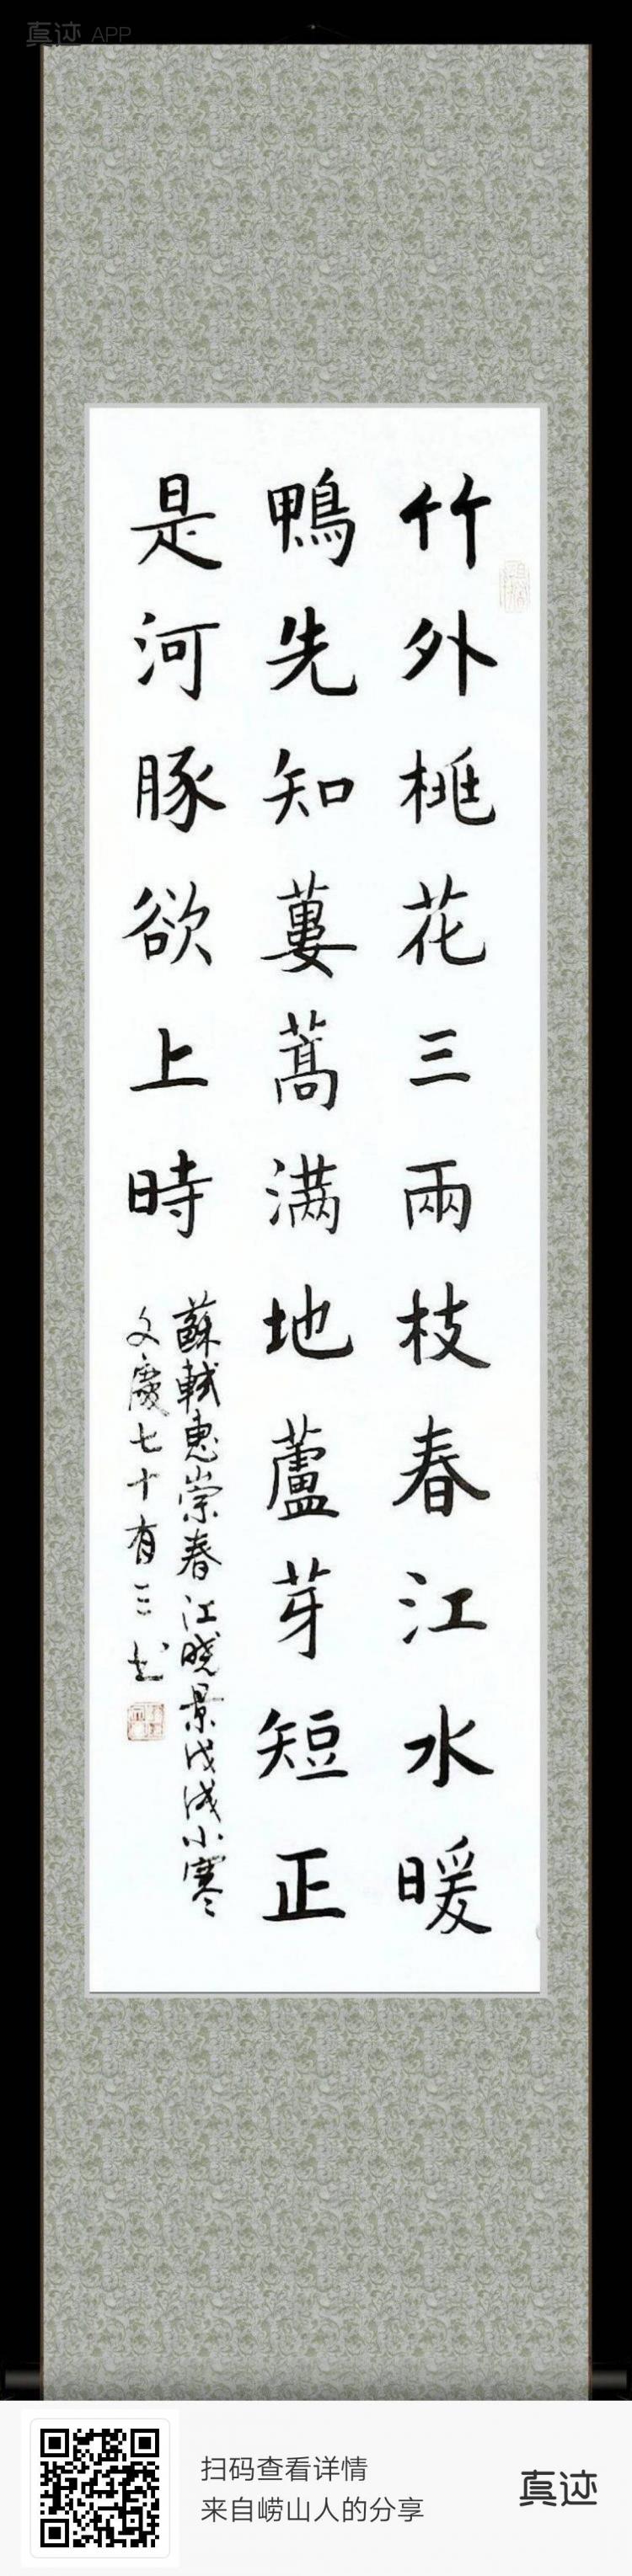 真迹 APP
竹外桃花三兩枝春江水暖
鴨先知蔞蒿满地蘆芽短正
是河豚欲上時
蘇軾惠崇春江晓景戊戌小寒
文慶七十有三书
扫码查看详情
来自崂山人的分享
真迹